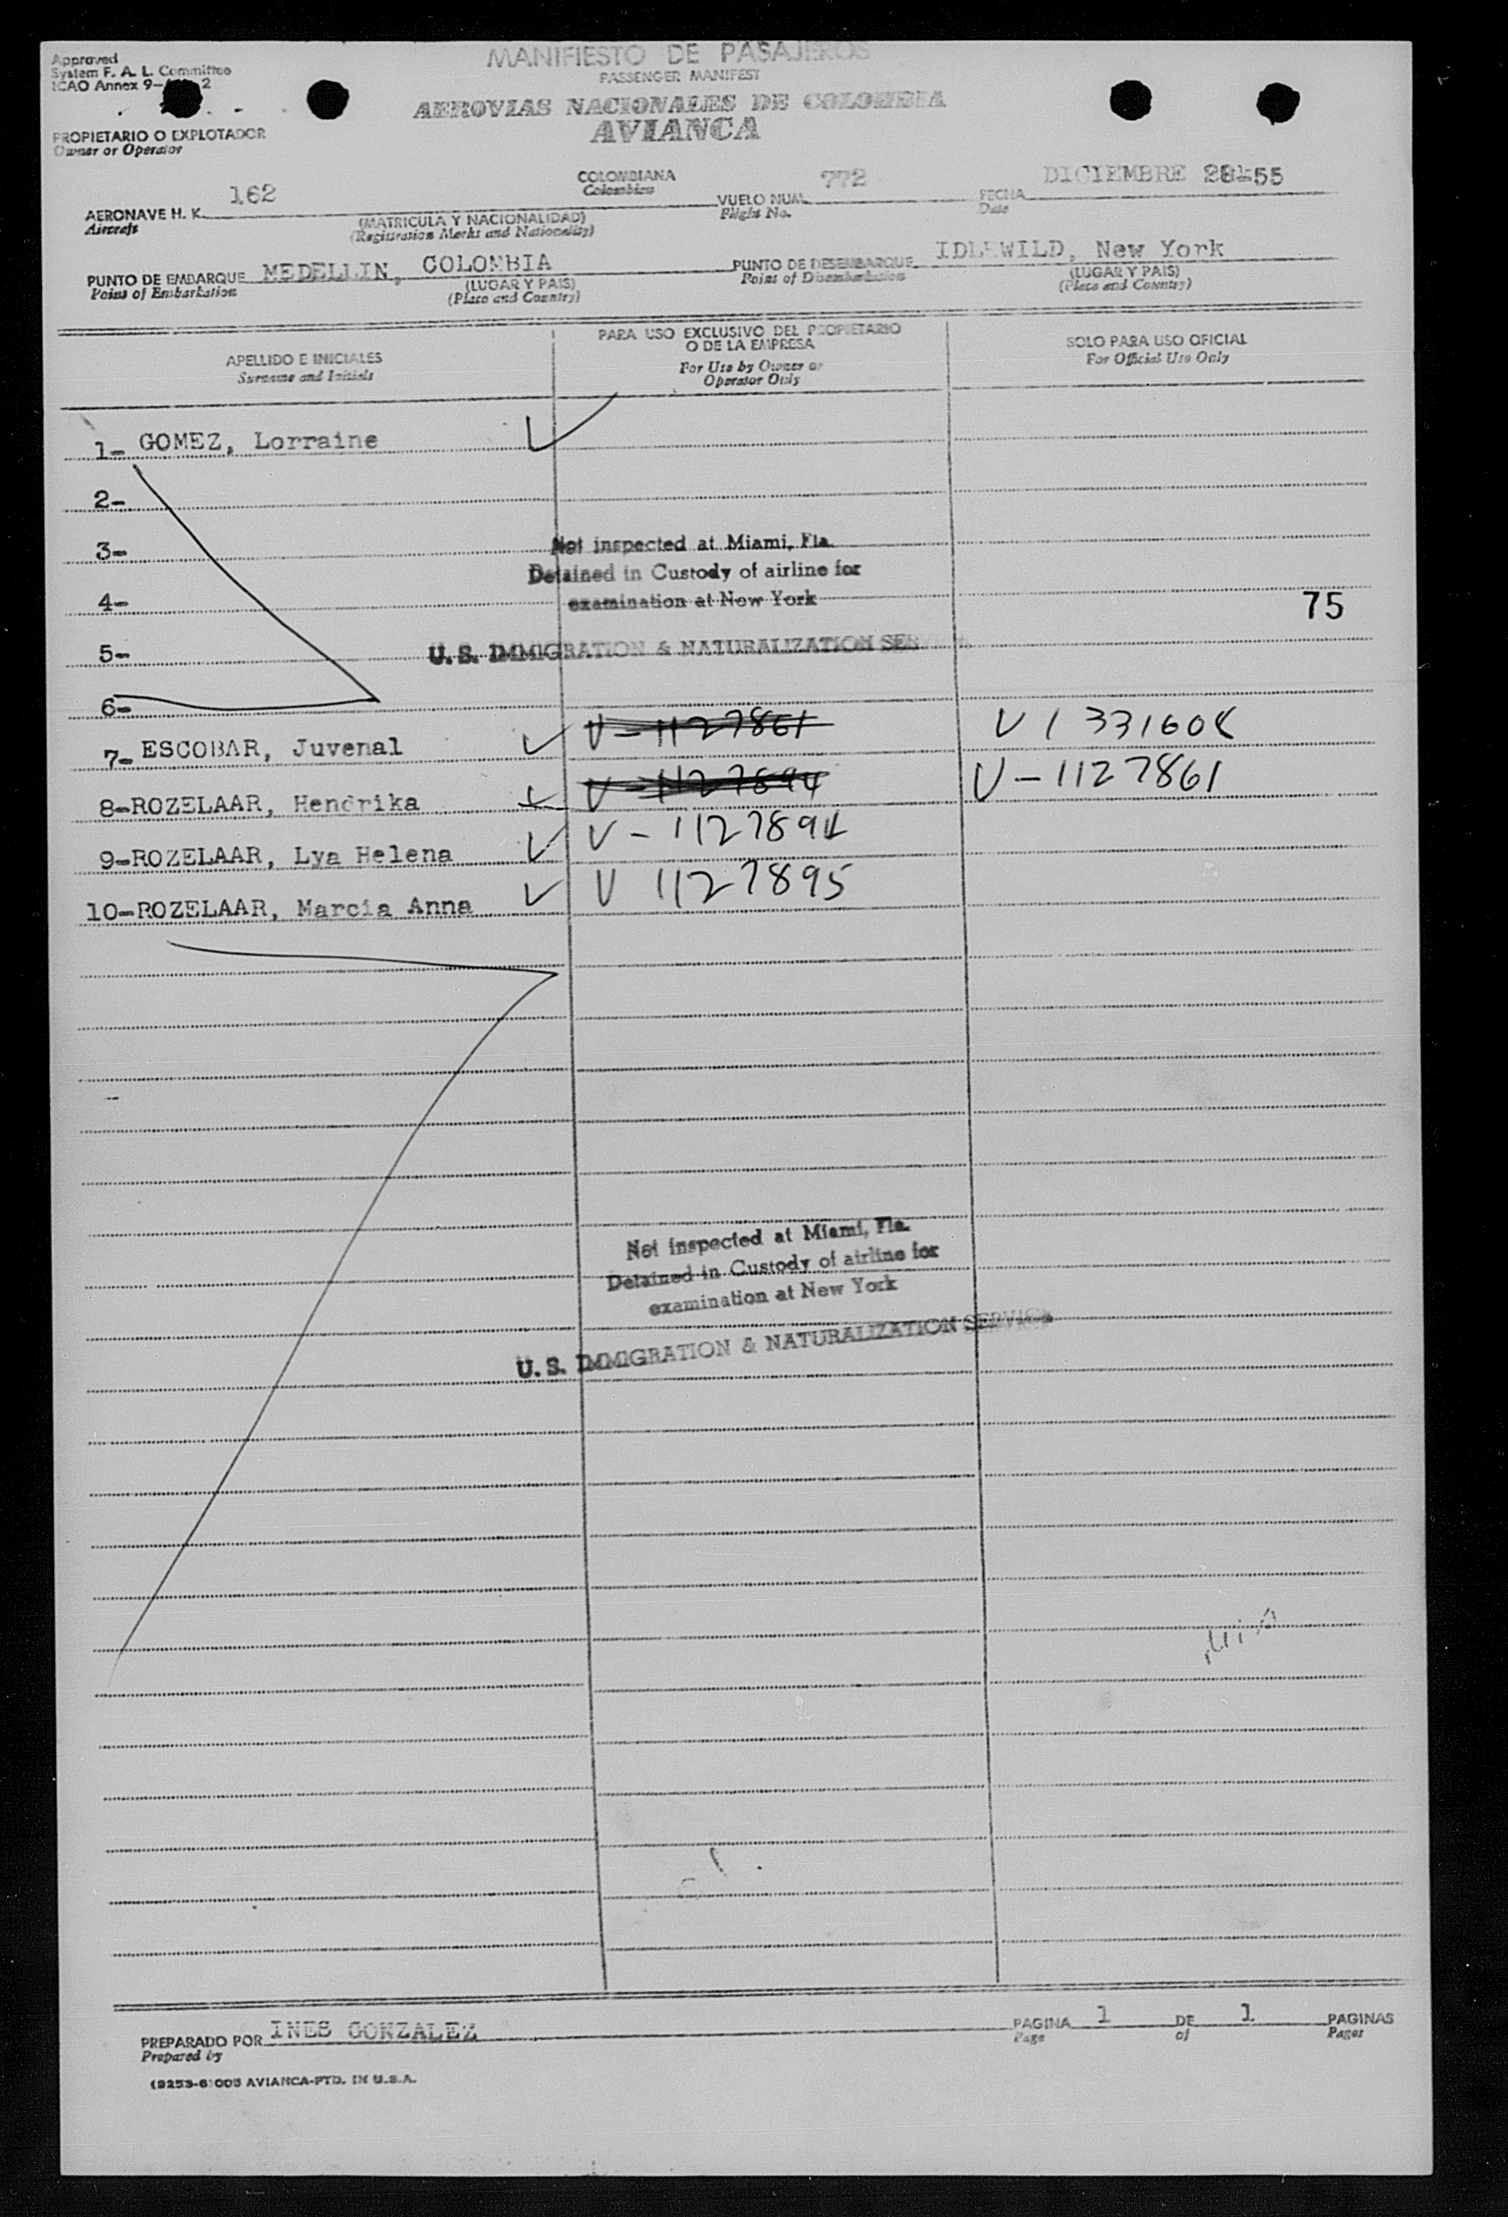 Approved
System F. A. L. Committee
ICAO Annex 9- 2
MANIFIESTO DE PASAJEROS
PASSENGER MANIFEST
AEROVIAS NACIONALES DE COLOMBIA
AVIANCA
PROPIETARIO O EXPLOTADOR
Owner or Operator
AERONAVE H. K. 162 COLOMBIANA VUELO NUM. 772 FECHA DICIEMBRE 28-55
Aircraft Colombian Flight No. Date
(MATRICULA Y NACIONALIDAD)
(Registration Marks and Nationality)
PUNTO DE EMBARQUE MEDELLIN, COLOMBIA PUNTO DE DESEMBARQUE IDLEWILD, New York
Point of Embarkation (LUGAR Y PAIS) Point of Disembarkation (LUGAR Y PAIS)
(Place and Country) (Place and Country)
APELLIDO E INICIALES PARA USO EXCLUSIVO DEL PROPIETARIO SOLO PARA USO OFICIAL
Surname and Initials O DE LA EMPRESA For Official Use Only
For Use by Owner or
Operator Only
1- GOMEZ, Lorraine
2-
3- Not inspected at Miami, Fla.
Detained in Custody of airline for
4- examination at New York 75
5- U. S. IMMIGRATION & NATURALIZATION SER
6-
7- ESCOBAR, Juvenal V-1127861 V 1331608
8-ROZELAAR, Hendrika V-1127894 V-1127861
9-ROZELAAR, Lya Helena V-1127894
10-ROZELAAR, Marcia Anna V 1127895
Not inspected at Miami, Fla.
Detained in Custody of airline for
examination at New York
U. S. IMMIGRATION & NATURALIZATION SERVICE
PREPARADO POR INES GONZALEZ PAGINA 1 DE 1 PAGINAS
Prepared by Page of Pages
AVIANCA-PTD. IN U.S.A.